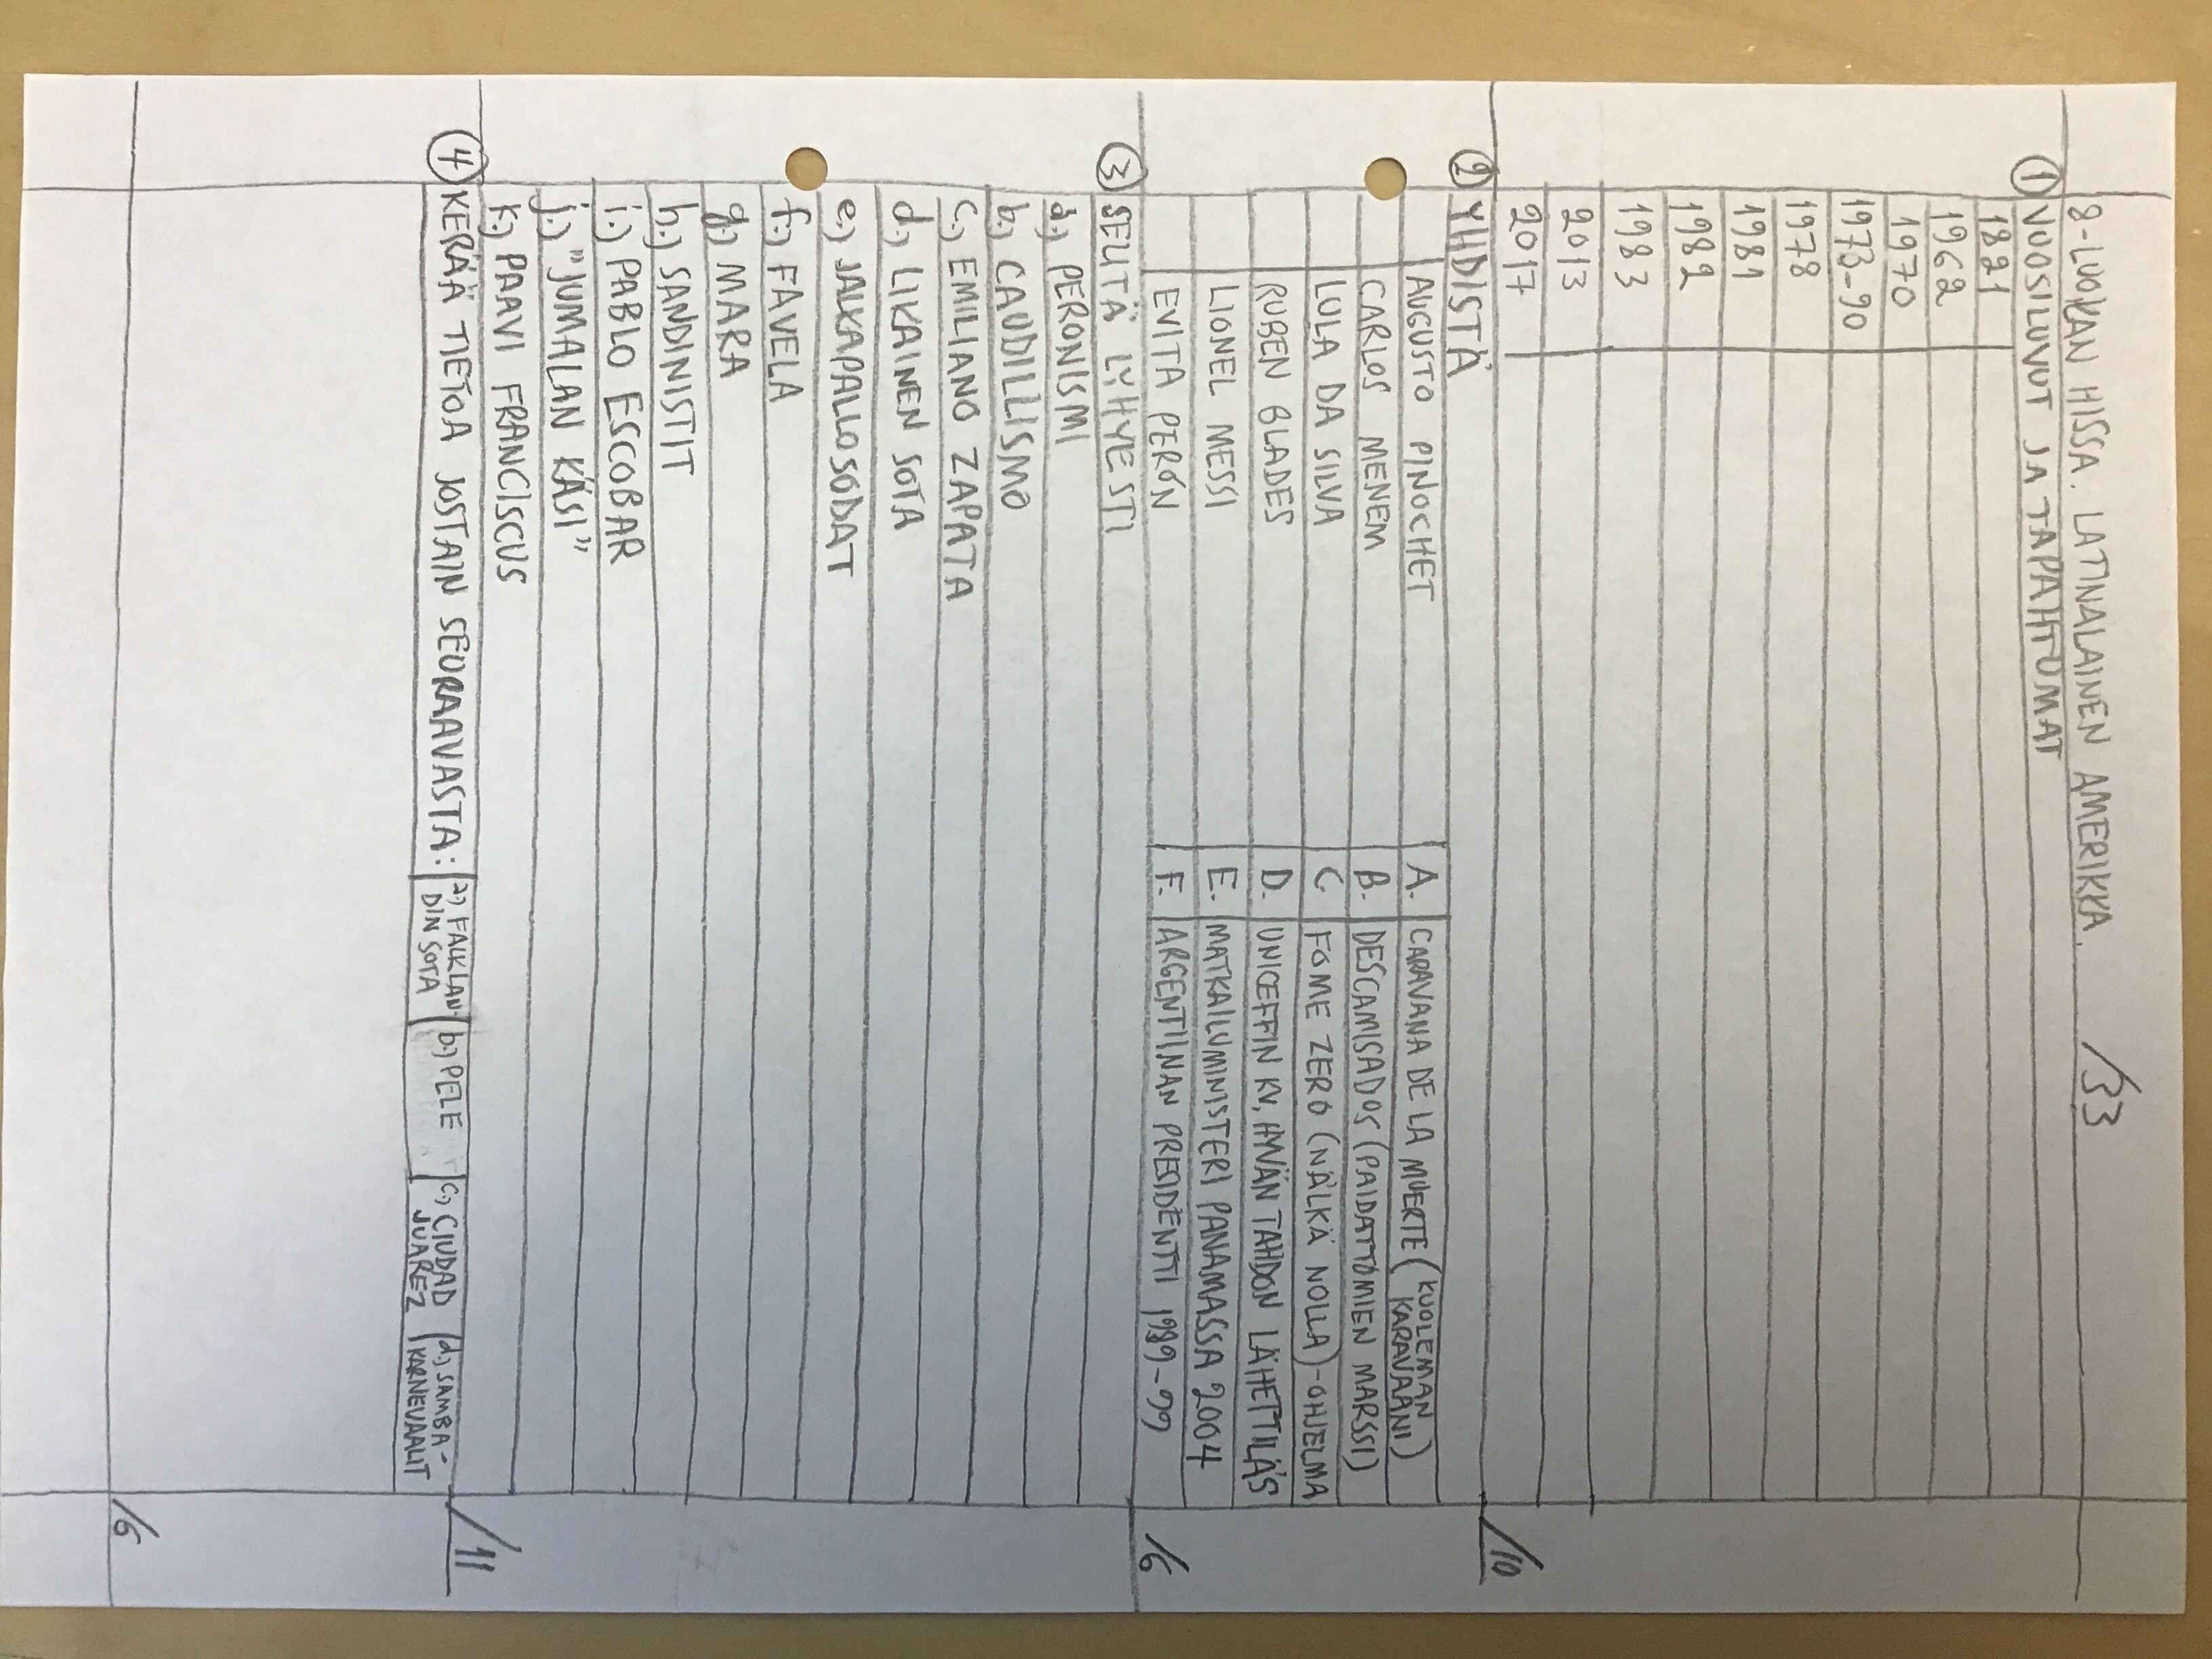 8-LUOKAN HISSA. LATINALAINEN AMERIKKA. /33
① VUOSILUVUT JA TAPAHTUMAT
1821
1962
1970
1973-90
1978
1981
1982
1983
2013
2017
/10
② YHDISTÄ
AUGUSTO PINOCHET A. CARAVANA DE LA MUERTE (KUOLEMAN KARAVAANI)
CARLOS MENEM B. DESCAMISADOS (PAIDATTOMIEN MARSSI)
LULA DA SILVA C. FOME ZERO (NÄLKÄ NOLLA)-OHJELMA
RUBEN BLADES D. UNICEFFIN KV. HYVÄN TAHDON LÄHETTILÄS
LIONEL MESSI E. MATKAILUMINISTERI PANAMASSA 2004
EVITA PERÓN F. ARGENTIINAN PRESIDENTTI 1989-99
/6
③ SELITÄ LYHYESTI
a.) PERONISMI
b.) CAUDILLISMO
c.) EMILIANO ZAPATA
d.) LIKAINEN SOTA
e.) JALKAPALLOSODAT
f.) FAVELA
g.) MARA
h.) SANDINISTIT
i.) PABLO ESCOBAR
j.) "JUMALAN KÄSI"
k.) PAAVI FRANCISCUS
/11
④ KERÄÄ TIETOA JOSTAIN SEURAAVASTA: a) FALKLAN-DIN SOTA b.) PELE c) CIUDAD JUAREZ d.) SAMBA-KARNEVAALIT
/6